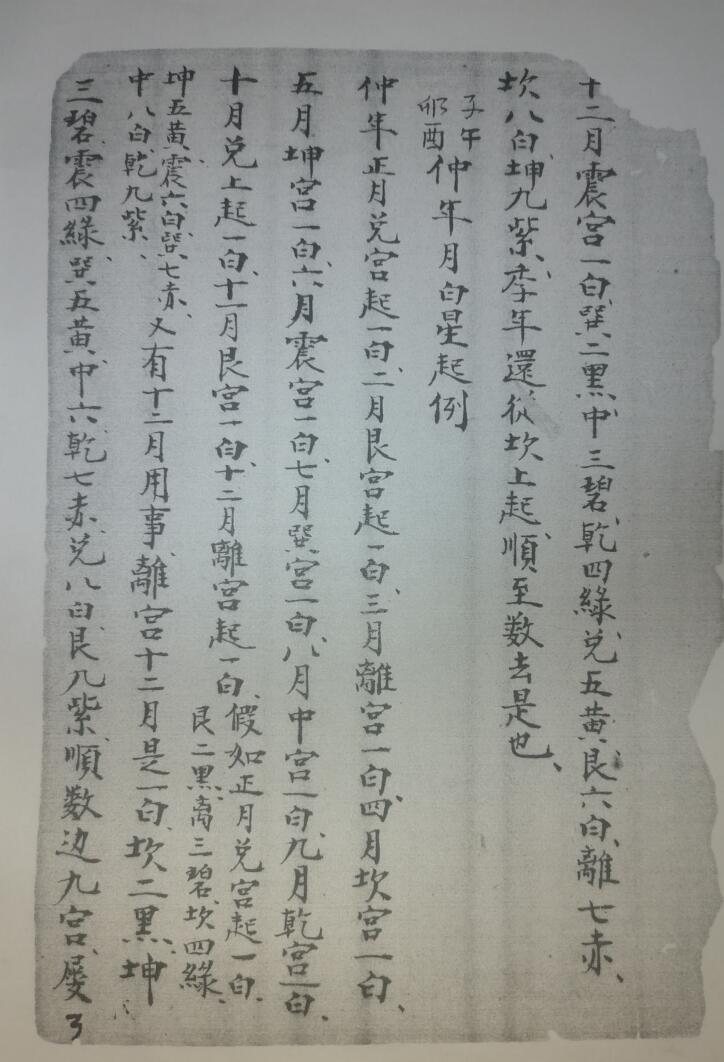 十二月震宮一白、巽二黑、中三碧、乾四綠、兌五黃、艮六白、離七赤、
坎八白、坤九紫、季年還從坎上起、順至数去是也、
子午卯酉仲年月白星起例
仲年正月兌宮起一白、二月艮宮起一白、三月離宮一白、四月坎宮一白、
五月坤宮一白、六月震宮一白、七月巽宮一白、八月中宮一白、九月乾宮一白、
十月兌上起一白、十一月艮宮一白、十二月離宮起一白、假如正月兌宮起一白、
艮二黑、离三碧、坎四綠、
坤五黃、震六白、巽七赤、
中八白、乾九紫、
又有十二月用事、離宮十二月是一白、坎二黑、坤
三碧、震四綠、巽五黃、中六、乾七赤、兌八白、艮九紫、順数边九宮、屡
3